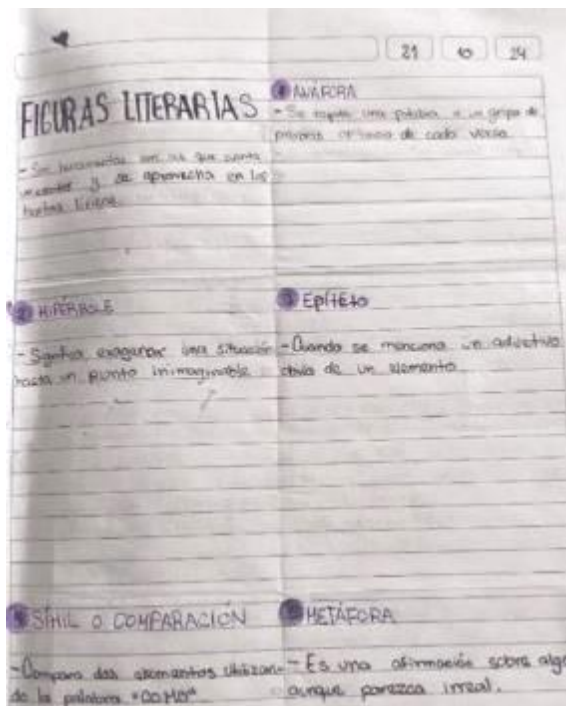 21 10 24
FIGURAS LITERARIAS
- Son herramientas con las que cuenta
y se aprovecha en los
textos
1 ANÁFORA
- Se repite una palabra o un grupo de
palabras al inicio de cada verso.
2 HIPÉRBOLE
- Significa exagerar una situación
hasta un punto inimaginable
3 EpítEto
- Cuando se menciona un adjetivo
obvio de un elemento
4 SÍMIL O COMPARACIÓN
- Compara dos elementos utilizan-
do la palabra "COMO"
METÁFORA
- Es una afirmación sobre algo
aunque parezca irreal.